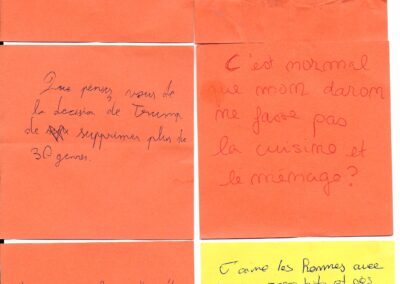 Que pensez vous de
la decision de Trump
de supprimer plus de
30 genres.
C'est normal
que mon daron
ne fasse pas
la cuisine et
le ménage ?
J'aime les Hommes avec